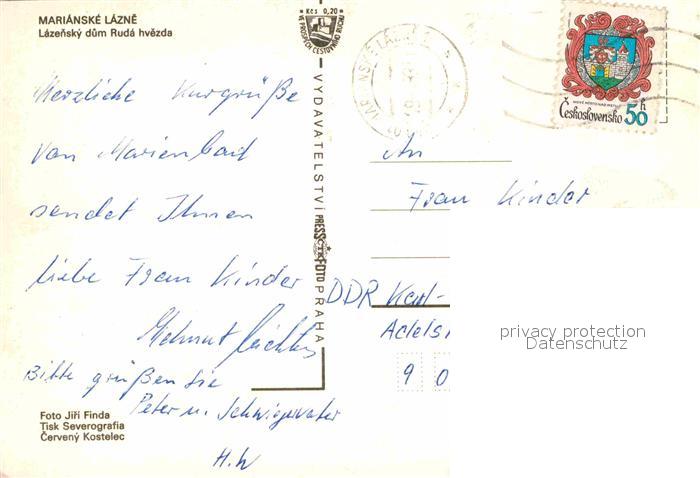 MARIÁNSKÉ LÁZNĚ
Lázeňský dům Rudá hvězda
Herzliche Kurgrüße
von Marienbad
sendet Ihnen
liebe Frau Kinder
Helmut
Bitte grüßen Sie
Peter u. Schwiegervater
H.W
Foto Jiří Finda
Tisk Severografia
Červený Kostelec
Kčs 0,20
VE PROSPĚCH CESTOVNÍHO RUCHU
VYDAVATELSTVÍ PRESSFOTO PRAHA
ČTK
NOVÉ MĚSTO NAD METUJÍ
Československo 50 h
An
Frau Kinder
DDR Karl-
Adels
9 0
privacy protection
Datenschutz